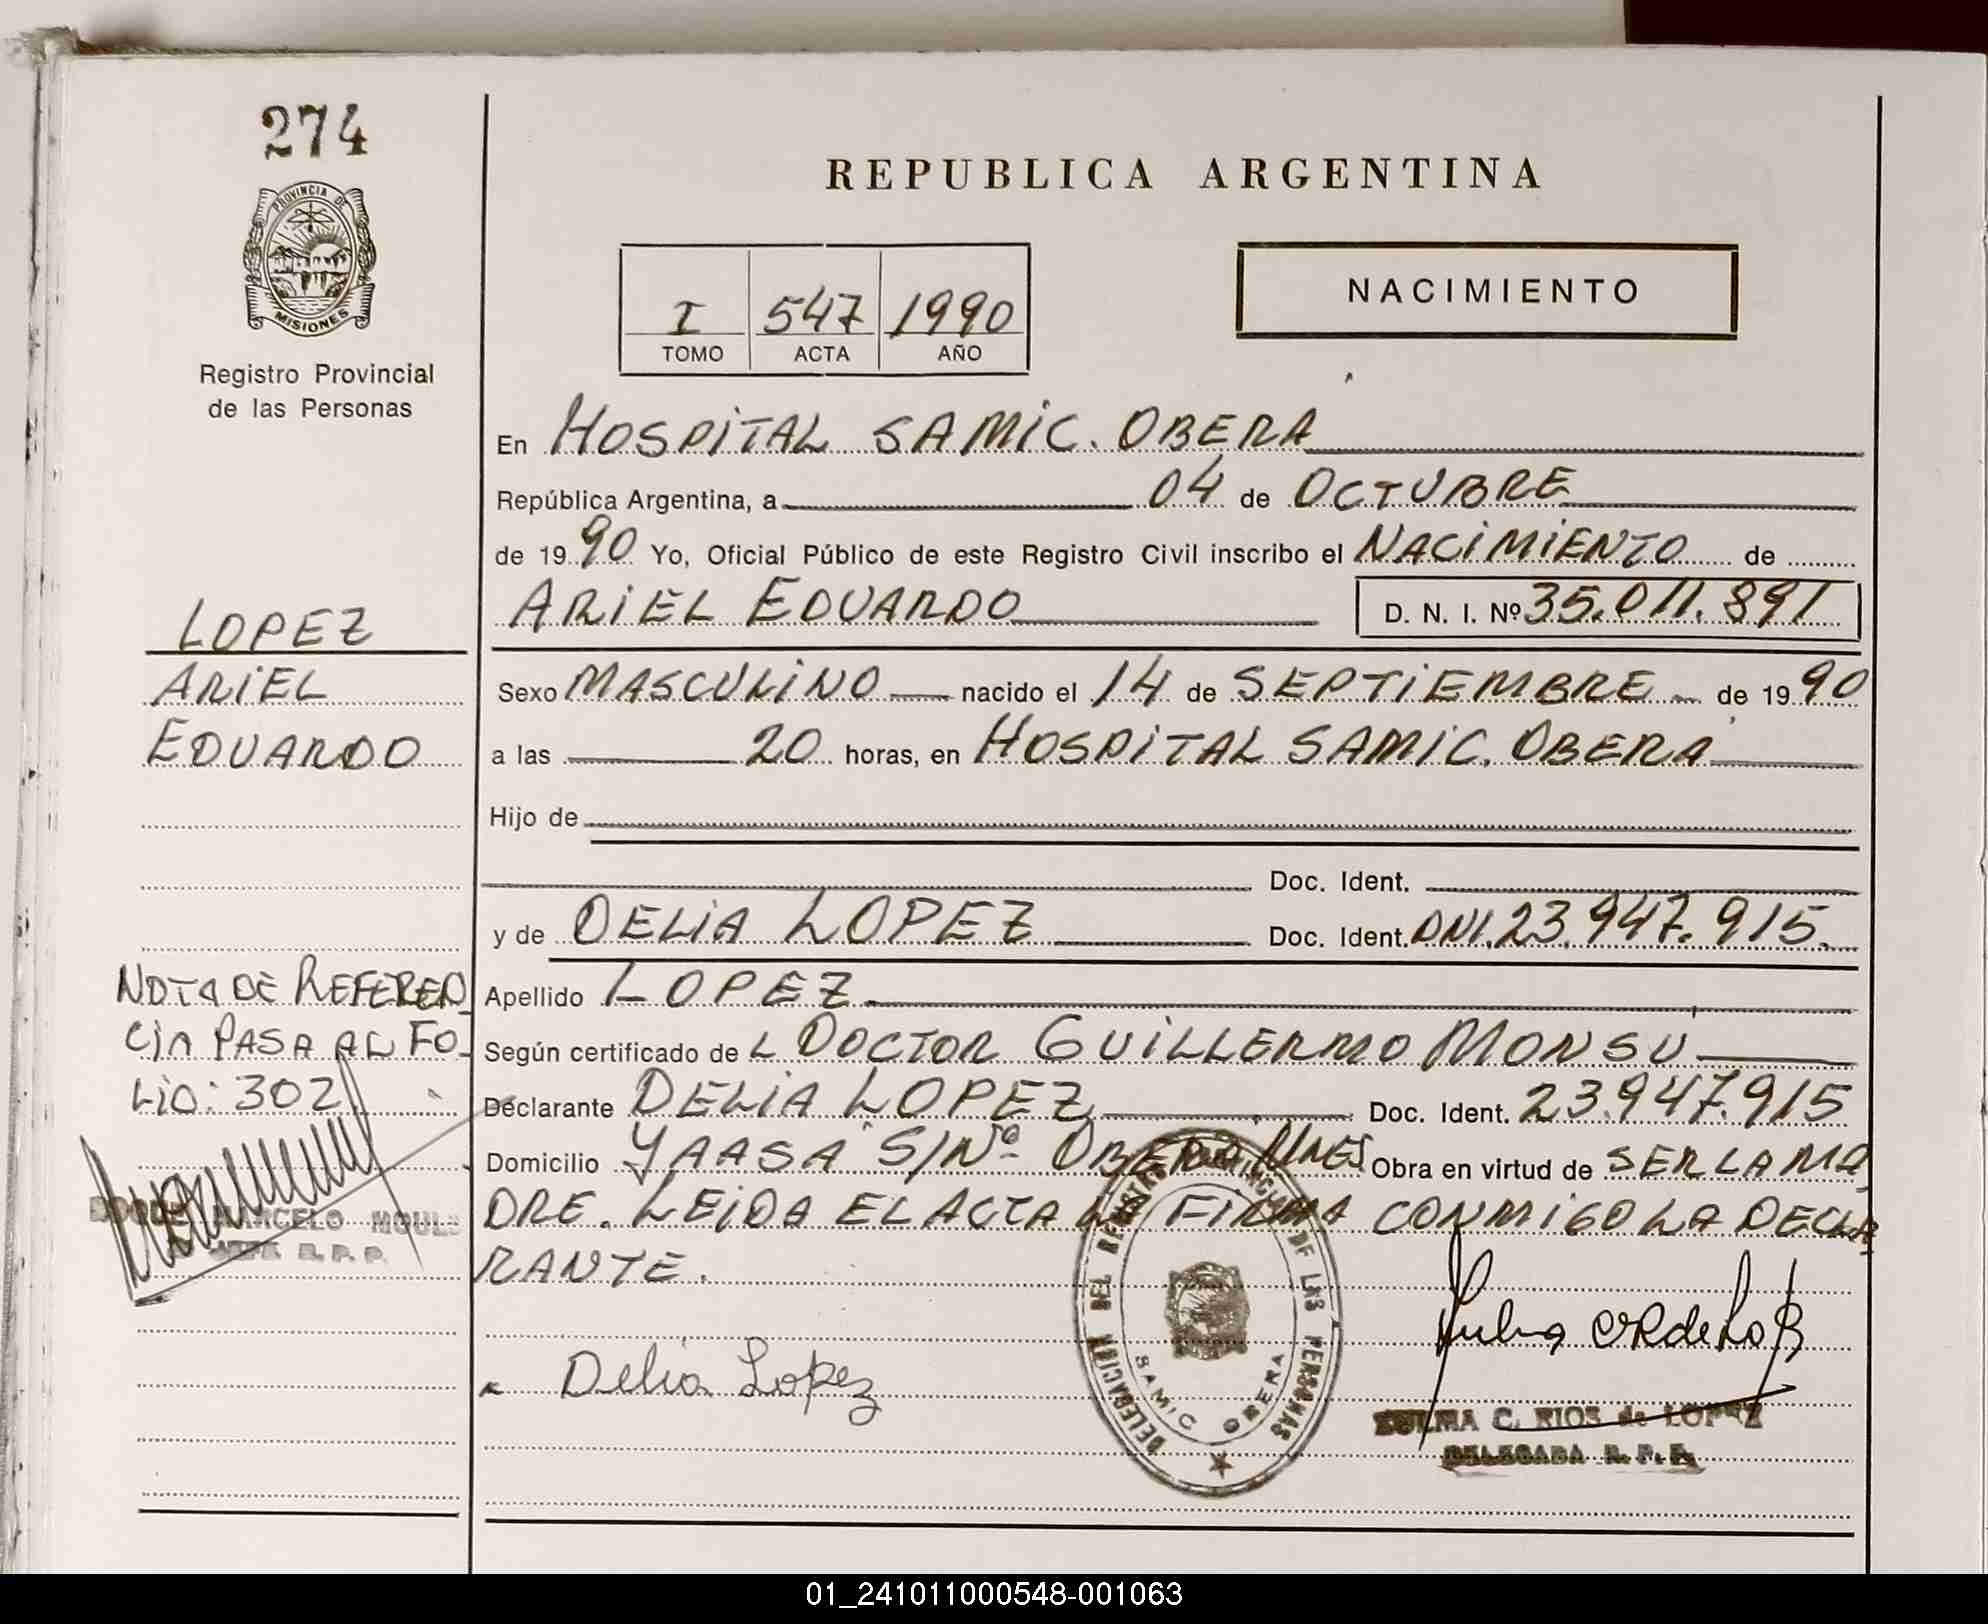 274
REPUBLICA ARGENTINA
PROVINCIA DE
MISIONES
Registro Provincial
de las Personas
I 547 1990
TOMO ACTA AÑO
NACIMIENTO
En HOSPITAL SAMIC. OBERA
República Argentina, a 04 de OCTUBRE
de 1990 Yo, Oficial Público de este Registro Civil inscribo el NACIMIENTO de
ARIEL EDUARDO D. N. I. Nº 35.011.891
LOPEZ
ARIEL
EDUARDO
Sexo MASCULINO nacido el 14 de SEPTIEMBRE de 1990
a las 20 horas, en HOSPITAL SAMIC. OBERA
Hijo de
Doc. Ident.
y de DELIA LOPEZ Doc. Ident. DNI. 23.947.915.
Apellido LOPEZ
Según certificado de L DOCTOR GUILLERMO MONSU
Declarante DELIA LOPEZ Doc. Ident. 23.947.915
Domicilio YAASA S/Nº OBERA, MNES Obra en virtud de SER LA MA
DRE. LEIDA EL ACTA LA FIRMA CONMIGO LA DECLA
RANTE.
NOTA DE REFEREN
CIA PASA AL FO_
LIO: 302
MARCELO
JEFE R. P. P.
Delia Lopez
DELEGACION DEL REGISTRO DE LAS PERSONAS
SAMIC OBERA
ZULMA C. RIOS de LOPEZ
DELEGADA R. P. P.
01_241011000548-001063